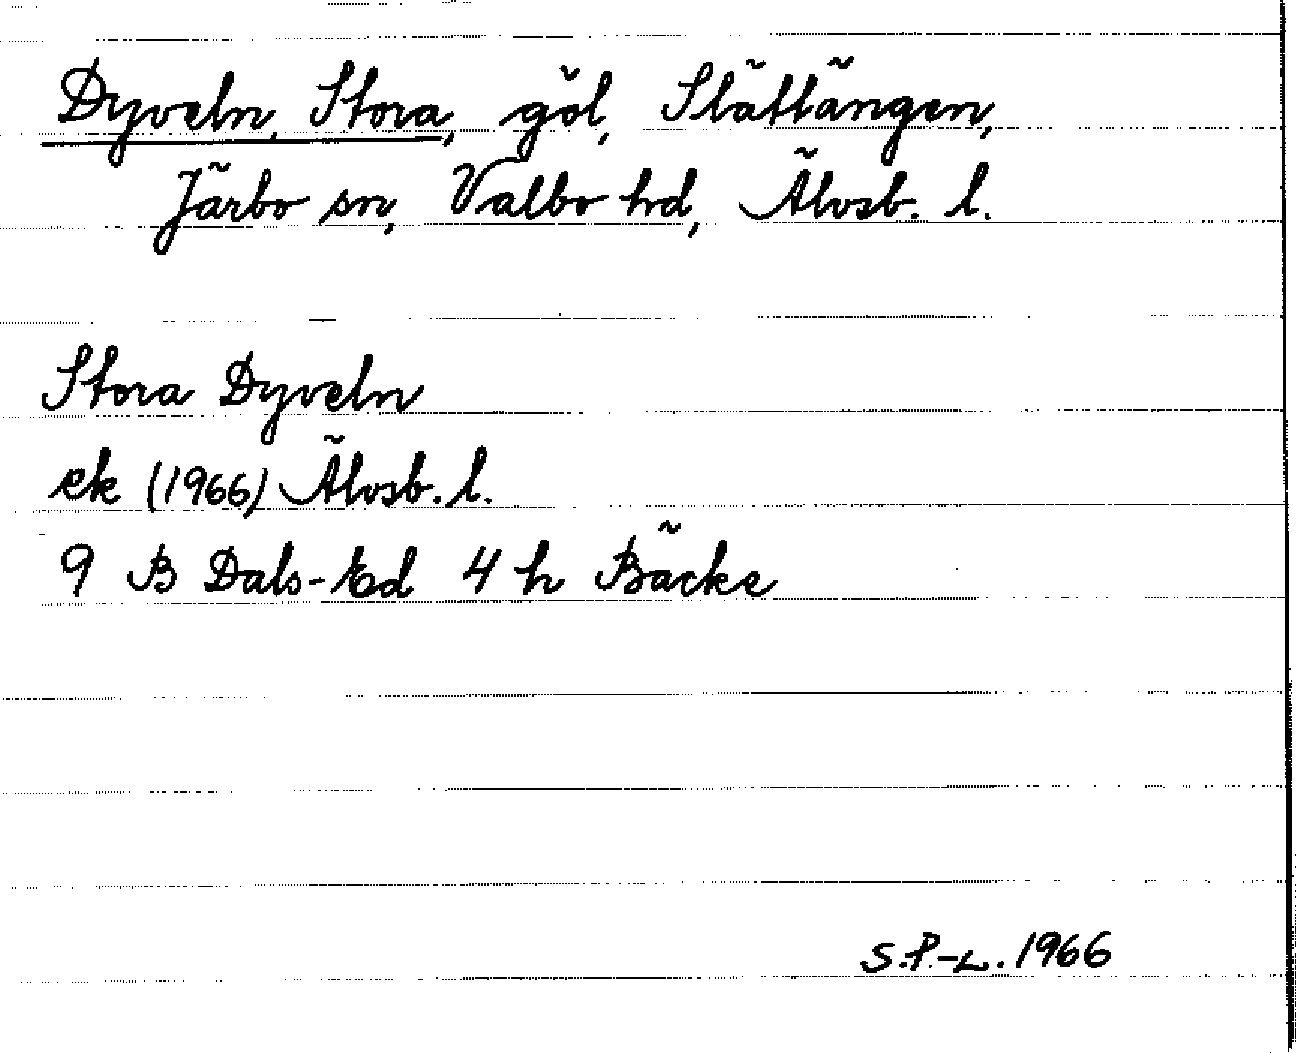 Dyveln, Stora, göl, Slättängen,
Järbo sn, Valbo hd, Älvsb. l.
Stora Dyveln
ek (1966) Älvsb. l.
9 B Dals-Ed 4 h Bäcke
S.P.-L. 1966